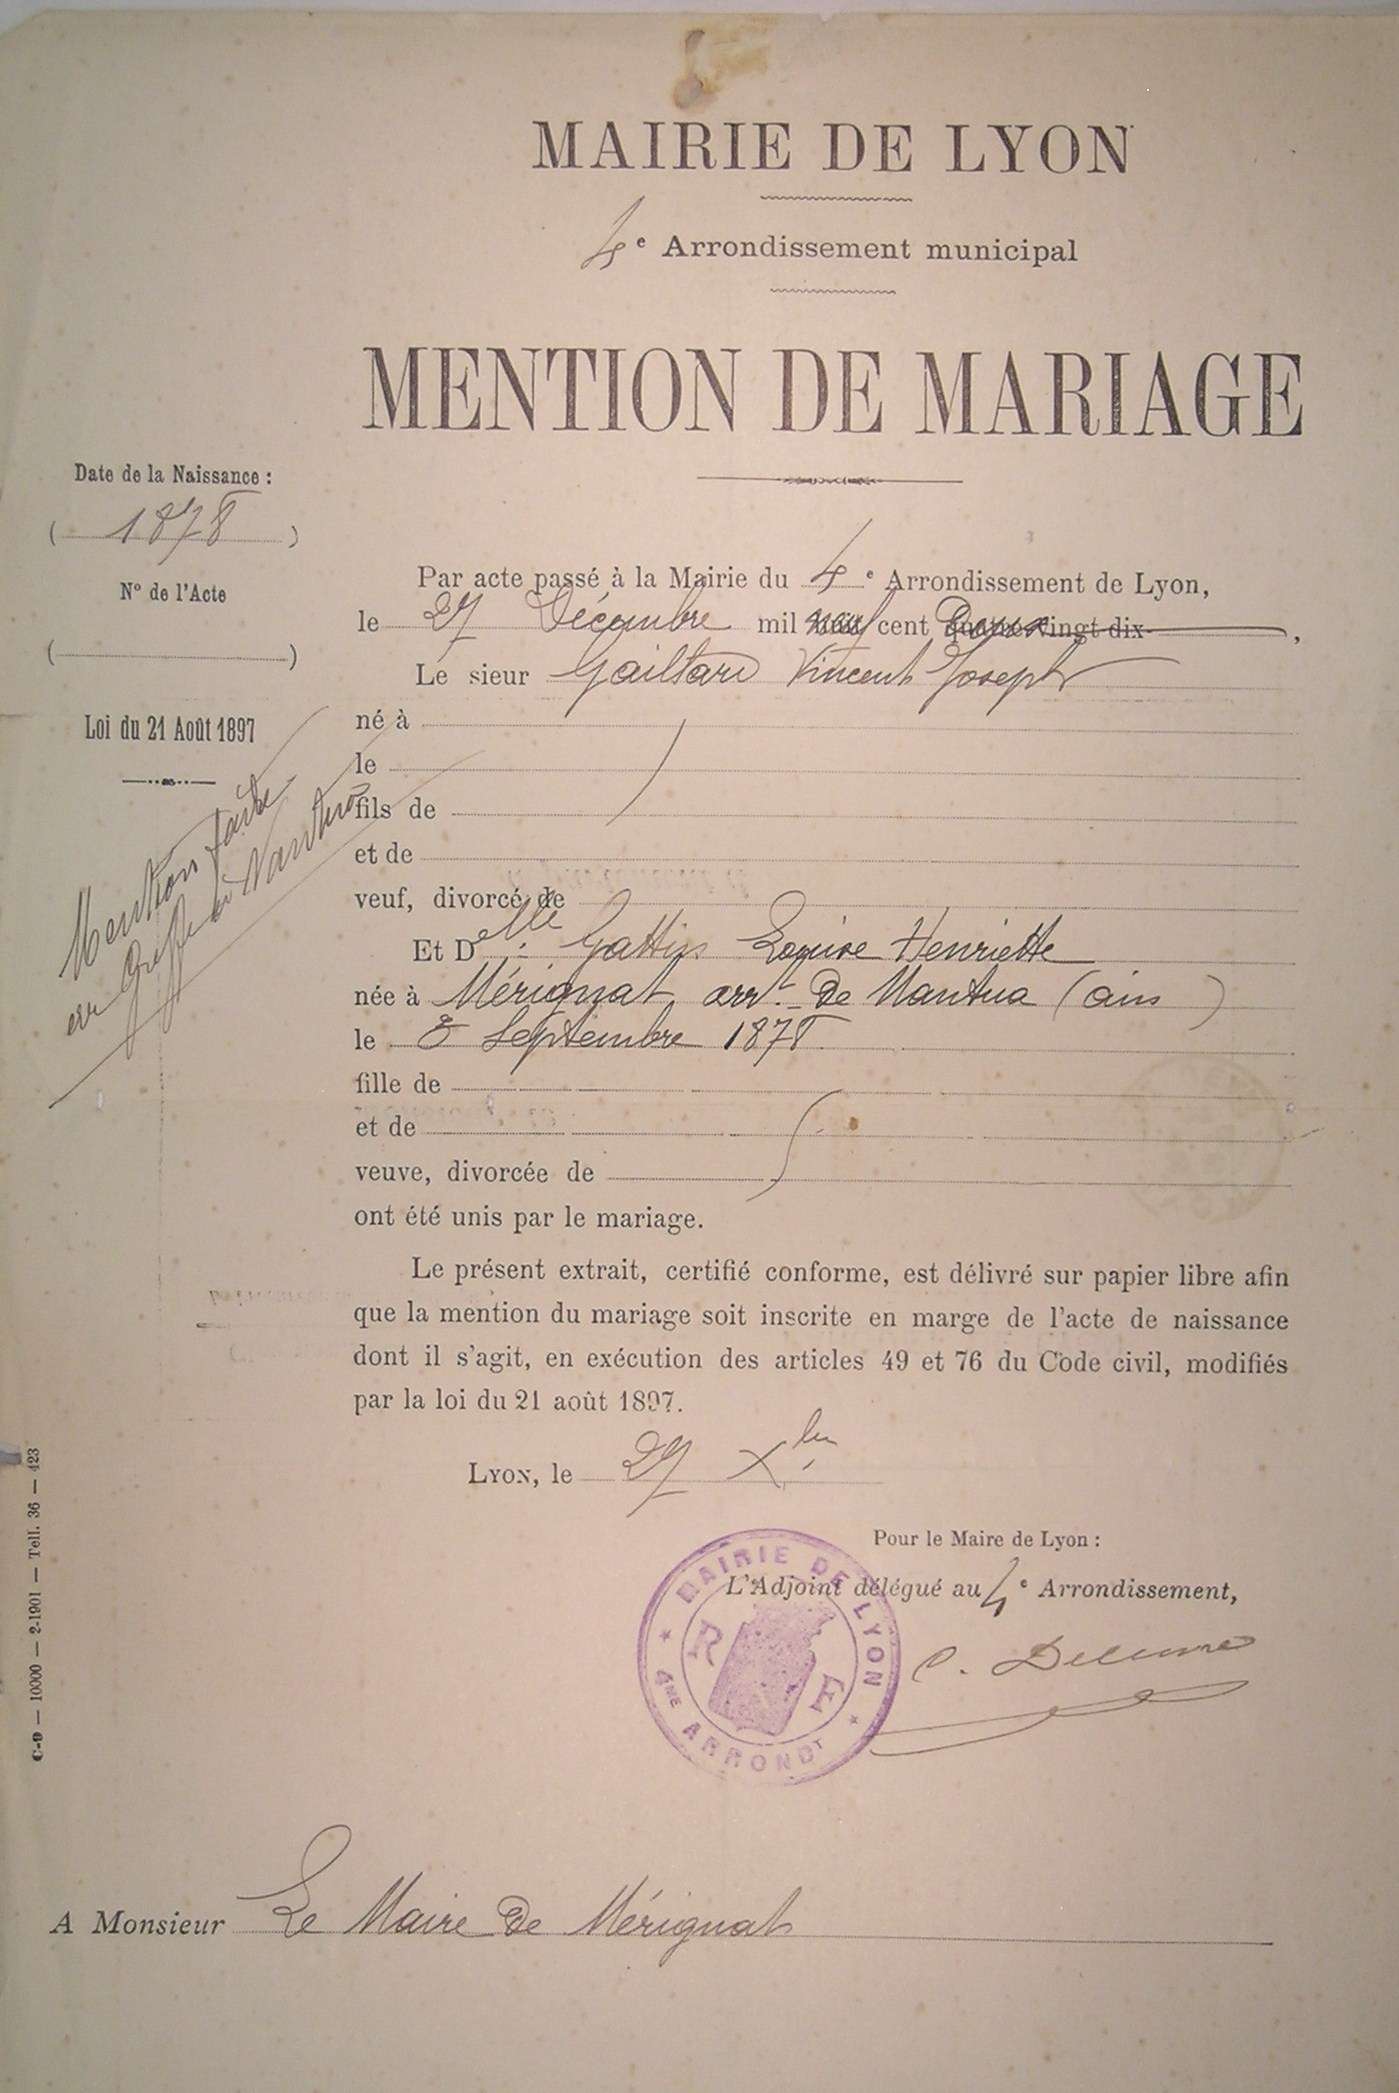 MAIRIE DE LYON
4e Arrondissement municipal
MENTION DE MARIAGE
Date de la Naissance :
( 1878 )
N° de l'Acte
( )
Loi du 21 Août 1897
Mention faite
au Greffe de Nantua
Par acte passé à la Mairie du 4e Arrondissement de Lyon,
le 27 Décembre mil neuf cent Deux quatre-vingt-dix ,
Le sieur Vincent Joseph
né à
le
fils de
et de
veuf, divorcé de
Et Delle : Louise Henriette
née à Mérignat, arrt de Nantua (ain)
le 8 Septembre 1878
fille de
et de
veuve, divorcée de
ont été unis par le mariage.
Le présent extrait, certifié conforme, est délivré sur papier libre afin
que la mention du mariage soit inscrite en marge de l'acte de naissance
dont il s'agit, en exécution des articles 49 et 76 du Code civil, modifiés
par la loi du 21 août 1897.
LYON, le 27 Xbre
Pour le Maire de Lyon :
L'Adjoint délégué au 4e Arrondissement,
MAIRIE DE LYON
R F
4ME ARRONDT
A Monsieur Le Maire de Mérignat
C-9 — 10000 — 2-1901 — Tell. 36 — 423